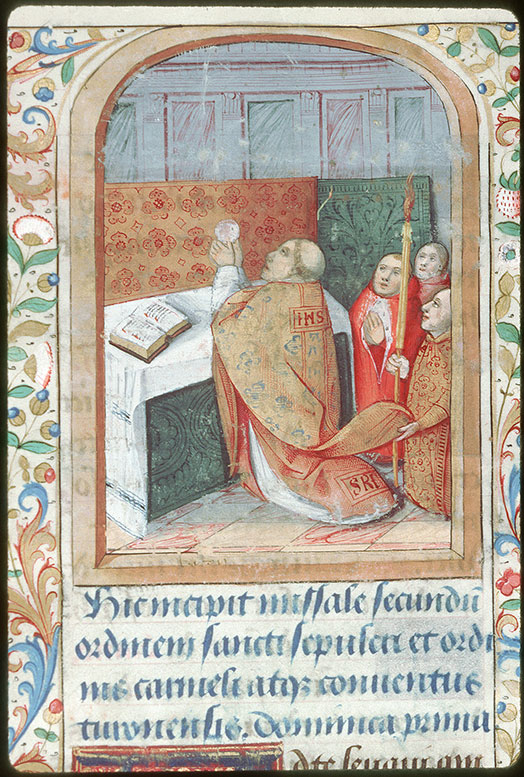 IHS
SRI
Hic incipit missale secundū
ordinem sancti sepulcri et ordi
nis carmeli atqz conuentus
turonensis. Dominica prima